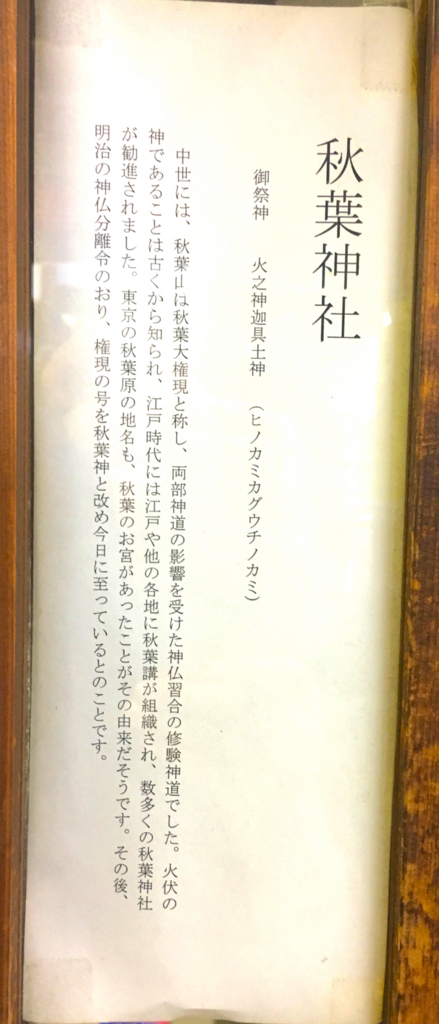 秋葉神社
御祭神　火之神迦具土神　（ヒノカミカグウチノカミ）
中世には、秋葉山は秋葉大権現と称し、両部神道の影響を受けた神仏習合の修験神道でした。火伏の
神であることは古くから知られ、江戸時代には江戸や他の各地に秋葉講が組織され、数多くの秋葉神社
が勧進されました。東京の秋葉原の地名も、秋葉のお宮があったことがその由来だそうです。その後、
明治の神仏分離令のおり、権現の号を秋葉神と改め今日に至っているとのことです。